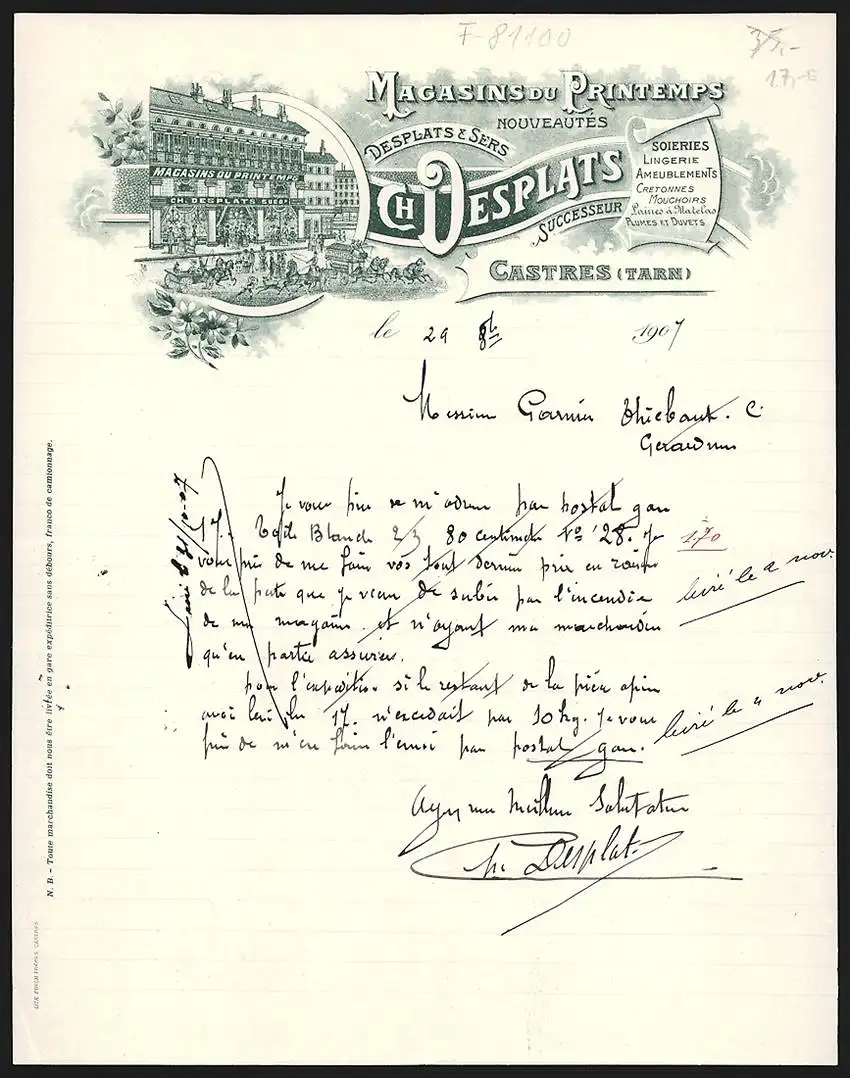 F-81100
35,-
17,-€
MAGASINS DU PRINTEMPS
NOUVEAUTÉS
DESPLATS & SERS
CH DESPLATS
SUCCESSEUR
SOIERIES
LINGERIE
AMEUBLEMENTS
CRETONNES
MOUCHOIRS
Laines à Matelas
PLUMES ET DUVETS
MAGASINS DU PRINTEMPS
CH. DESPLATS SUCC
CASTRES (TARN)
le 29 8bre 1907
Messieurs Garnier Thiebaut. C.
Gerardmer
Je vous prie de m'adresser par postal gare
17. Toile Blanche 2/3 80 centimètres No 128. Je
1.70
vous prie de me faire vos tout dernier prix en raison
de la perte que je viens de subir par l'incendie
livré le 2 nov.
de mes magasins et n'ayant ma marchandise
qu'en partie assurée.
pour l'expédition si le restant de la pièce
avec les 17. n'excedait pas 10 kg. Je vous
livré le 4 nov.
prie de m'en faire l'envoi par postal gare.
Agréez mes Meilleures Salutations
Ch. Desplats
N. B. - Toute marchandise doit nous être livrée en gare expéditrice sans débours, franco de camionnage.